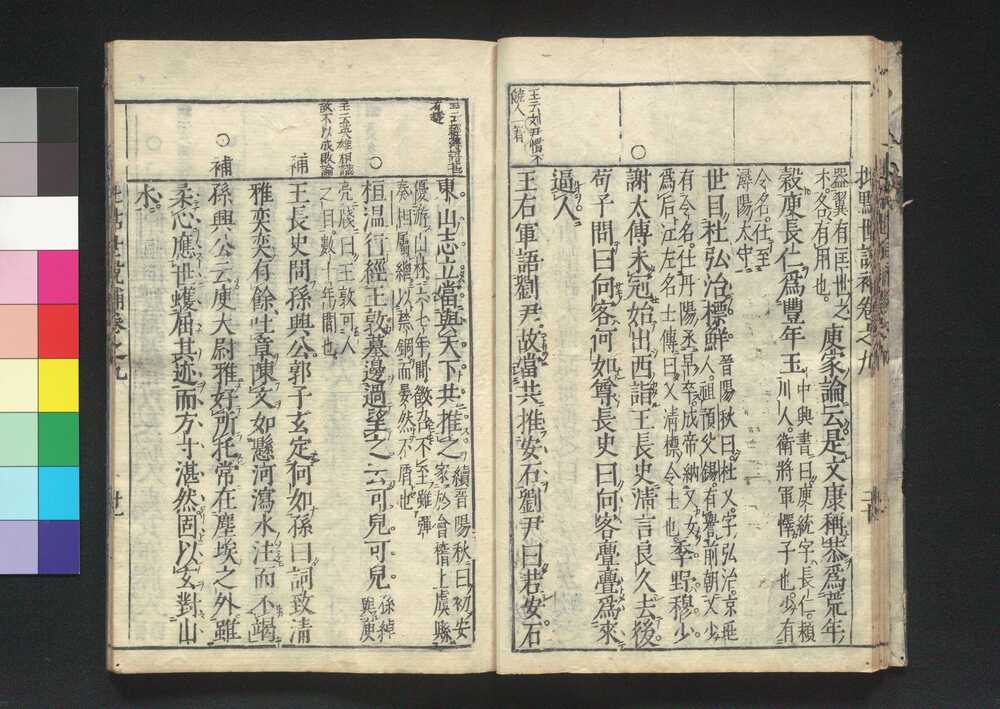 批點世說補卷之九
器翼有匡世之
不。各有用也。
庾家論云是文康稱恭爲荒年
穀庾長仁爲豐年玉
中興書曰庾統字長仁潁
川人。衛將軍懌子也。少有
令名。仕至
潯陽太守
世目杜弘治標鮮
晉陽秋曰杜乂字弘治。京兆
人。祖預父錫有譽前朝乂少
有令名。仕丹陽丞早卒。成帝納乂女
爲后。江左名士傳曰。乂清標令上也。
季野穆少
謝太傅未冠始出西詣王長史清言良久去後
苟子問曰向客何如尊長史曰向客亹亹爲來
逼人
王右軍語劉尹故當共推安石劉尹曰若安石
東山志立當與天下共推之
續晉陽秋曰初安
家於會稽上虞縣
優游山林六七年間徵召不至雖彈
奏相屬繼以禁錮而晏然不屑也
桓温行經王敦墓邊過望之云可兒可兒
孫綽
與庾
亮牋曰王敦可人
之目數十年間也
補
王長史問孫興公郭子玄定何如孫曰詞致清
雅奕奕有餘吐章陳文如懸河瀉水注而不竭
補
孫興公云庾太尉雅好所托常在塵埃之外雖
柔心應世蠖屈其迹而方寸湛然固以玄對山
水